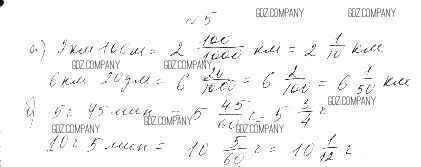 № 5
GDZ.COMPANY GDZ.COMPANY
а) 2 км 100 м = 2 100/1000 км = 2 1/10 км
GDZ.COMPANY GDZ.COMPANY
6 км 20 дм = 6 20/1000 = 6 2/100 = 6 1/50 км
GDZ.COMPANY GDZ.COMPANY
б) 5 ч 45 мин = 5 45/60 ч = 5 3/4 ч
GDZ.COMPANY GDZ.COMPANY
10 ч 5 мин = 10 5/60 ч = 10 1/12 ч